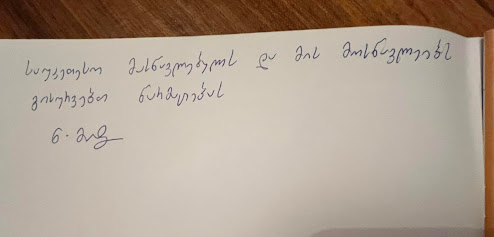 საუკეთესო მასწავლებელს და მის მოსწავლეებს
გისურვებთ წარმატებას
ნ.